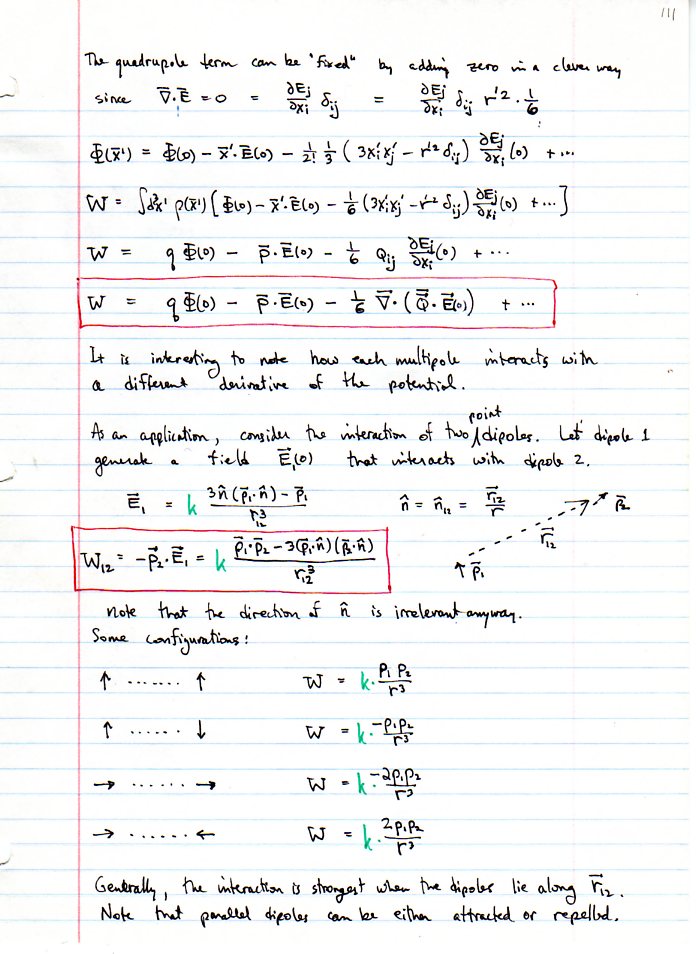 111
The quadrupole term can be "fixed" by adding zero in a clever way
since ∇⃗·E⃗ = 0 = ∂Ej/∂xi δij = ∂Ej/∂xi δij r'² · 1/6
Φ(x⃗') = Φ(0) − x⃗'·E⃗(0) − 1/2! 1/3 (3xi'xj' − r'² δij) ∂Ej/∂xi (0) + ...
W = ∫d³x' ρ(x⃗') [Φ(0) − x⃗'·E⃗(0) − 1/6 (3xi'xj' − r'² δij) ∂Ej/∂xi (0) + ...]
W = q Φ(0) − p⃗·E⃗(0) − 1/6 Qij ∂Ej/∂xi (0) + ...
W = q Φ(0) − p⃗·E⃗(0) − 1/6 ∇⃗·(Q⃗⃗·E⃗(0)) + ...
It is interesting to note how each multipole interacts with
a different derivative of the potential.
As an application, consider the interaction of two point dipoles. Let dipole 1
generate a field E⃗₁(0) that interacts with dipole 2.
E⃗₁ = k (3n̂(p⃗₁·n̂) − p⃗₁)/r₁₂³ n̂ = n̂₁₂ = r⃗₁₂/r
p⃗₂
r⃗₁₂
p⃗₁
W₁₂ = −p⃗₂·E⃗₁ = k (p⃗₁·p⃗₂ − 3(p⃗₁·n̂)(p⃗₂·n̂))/r₁₂³
Note that the direction of n̂ is irrelevant anyway.
Some configurations:
↑ ....... ↑ W = k· p₁p₂/r³
↑ ...... ↓ W = k· −p₁p₂/r³
→ ...... → W = k· −2p₁p₂/r³
→ ...... ← W = k· 2p₁p₂/r³
Generally, the interaction is strongest when the dipoles lie along r⃗₁₂.
Note that parallel dipoles can be either attracted or repelled.